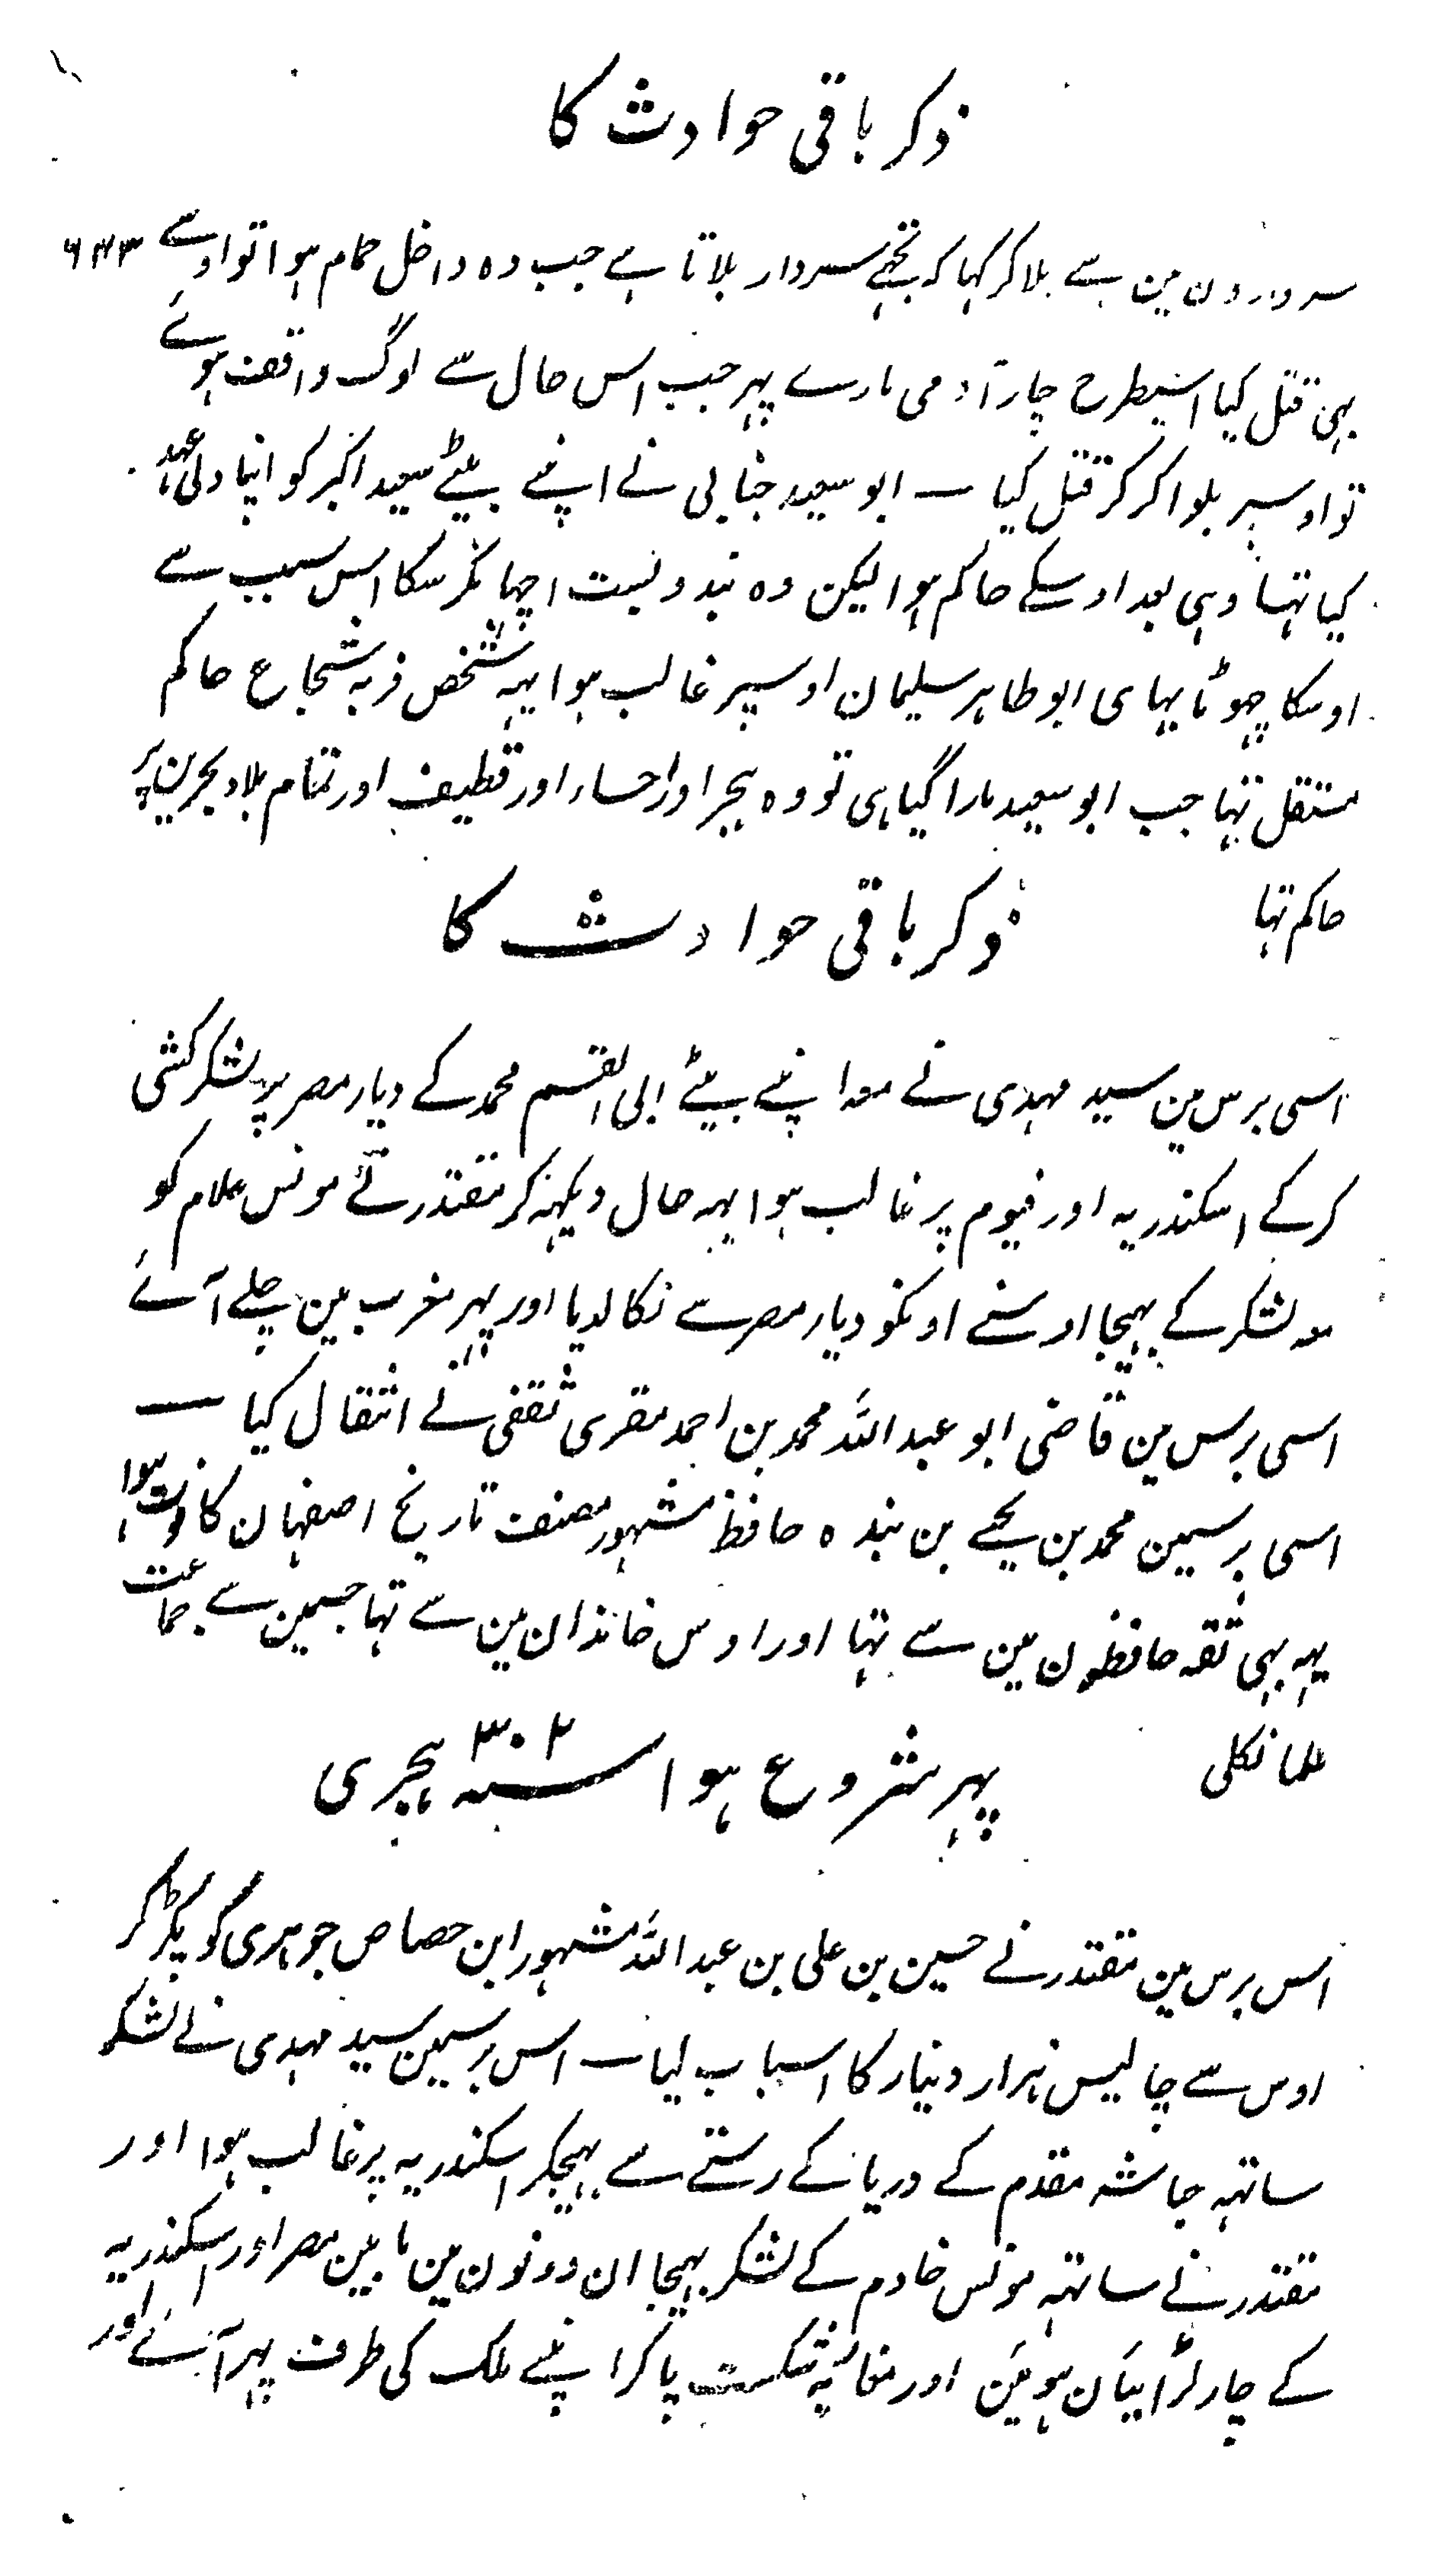 ذکر باقی حوادث کا
۶۴۳
سردارون مین سے بلا کر کہا کہ تجھے سردار بلاتا ہے جب وہ داخل حمام ہوا تو اوسے
بہی قتل کیا اسیطرح چار آدمی مارے پہر جب اس حال سے لوگ واقف ہوئے
تو اوسپر بلوا کر کر قتل کیا ــ ابو سعید جنابی نے اپنے بیٹے سعید اکبر کو اپنا ولی عہد
کیا تہا وہی بعد اوسکے حاکم ہوا لیکن وہ بندوبست اچہا نکر سکا اس سبب سے
اوسکا چہوٹا بہای ابو طاہر سلیمان اوسپر غالب ہوا یہہ شخص فربہ شجاع حاکم
مستقل تہا جب ابو سعید مارا گیا ہی تو وہ ہجر اور احساء اور قطیف اور تمام بلاد بحرین پر
حاکم تہا
ذکر باقی حوادث کا
اسی برس مین سید مہدی نے معہ اپنے بیٹے ابی القسم محمد کے دیار مصر پر لشکر کشی
کر کے اسکندریہ اور فیوم پر غالب ہوا یہہ حال دیکہہ کر مقتدر نے مونس غلام کو
معہ لشکر کے بہیجا اوسنے اونکو دیار مصر سے نکالدیا اور پہر مغرب مین چلے آئے
اسی برس مین قاضی ابو عبد اللہ محمد بن احمد مقری ثقفی نے انتقال کیا ــ
اسی برسمین محمد بن یحیے بن مندہ حافظ مشہور مصنف تاریخ اصفہان کا فوت ہوا
یہہ بہی ثقہ حافظون مین سے تہا اور اوس خاندان مین سے تہا جسمین سے جماعت
علما نکلی
پہر شروع ہوا سنہ ۳۰۲ ہجری
اس برس مین مقتدر نے حسین بن علی بن عبد اللہ مشہور ابن حصاص جوہری کو پکڑ کر
اوس سے چالیس ہزار دینار کا اسباب لیا ــ اس برسمین سید مہدی نے لشکر
ساتہہ جاشہ مقدم کے دریا کے رستے سے بہیجکر اسکندریہ پر غالب ہوا اور
مقتدر نے ساتہہ مونس خادم کے لشکر بہیجا ان دونون مین مابین مصر اور اسکندریہ
کے چار لڑائیان ہوئین اور مغاربہ شکست پا کر اپنے ملک کی طرف پہر آئے اور